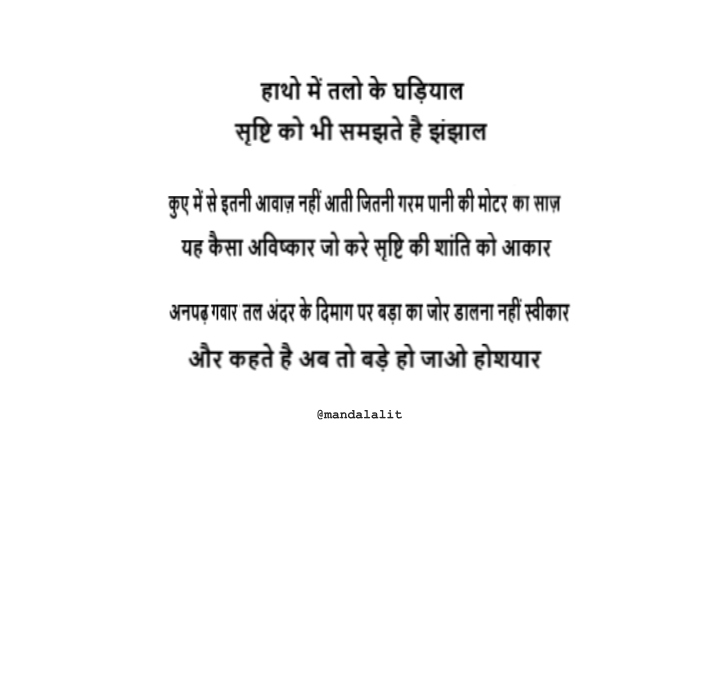 हाथो में तलो के घड़ियाल
सृष्टि को भी समझते है झंझाल
कुए में से इतनी आवाज़ नहीं आती जितनी गरम पानी की मोटर का साज़
यह कैसा अविष्कार जो करे सृष्टि की शांति को आकार
अनपढ़ गवार तल अंदर के दिमाग पर बड़ा का जोर डालना नहीं स्वीकार
और कहते है अब तो बड़े हो जाओ होशयार
@mandalalit